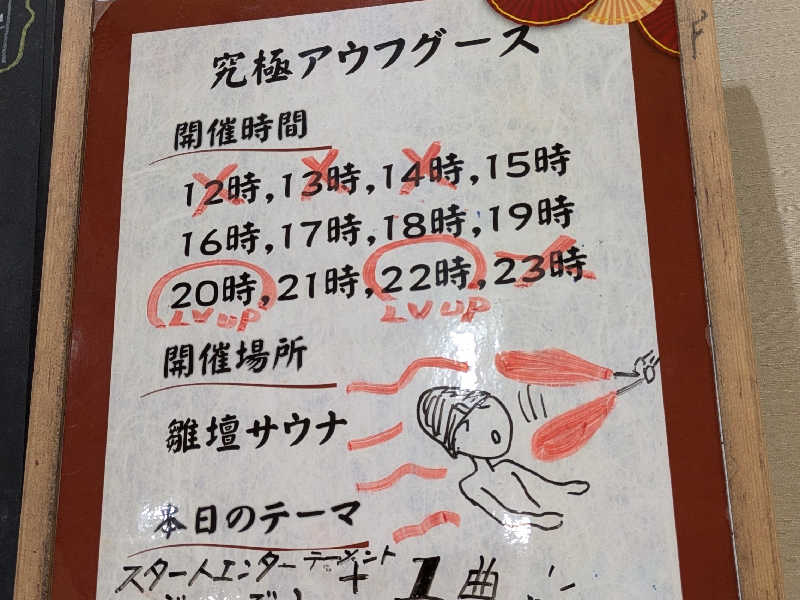 究極アウフグース
開催時間
12時,13時,14時,15時
16時,17時,18時,19時
20時,21時,22時,23時
LV UP LV UP
開催場所
雛壇サウナ
本日のテーマ
スター人エンターテーメント
+ 1曲